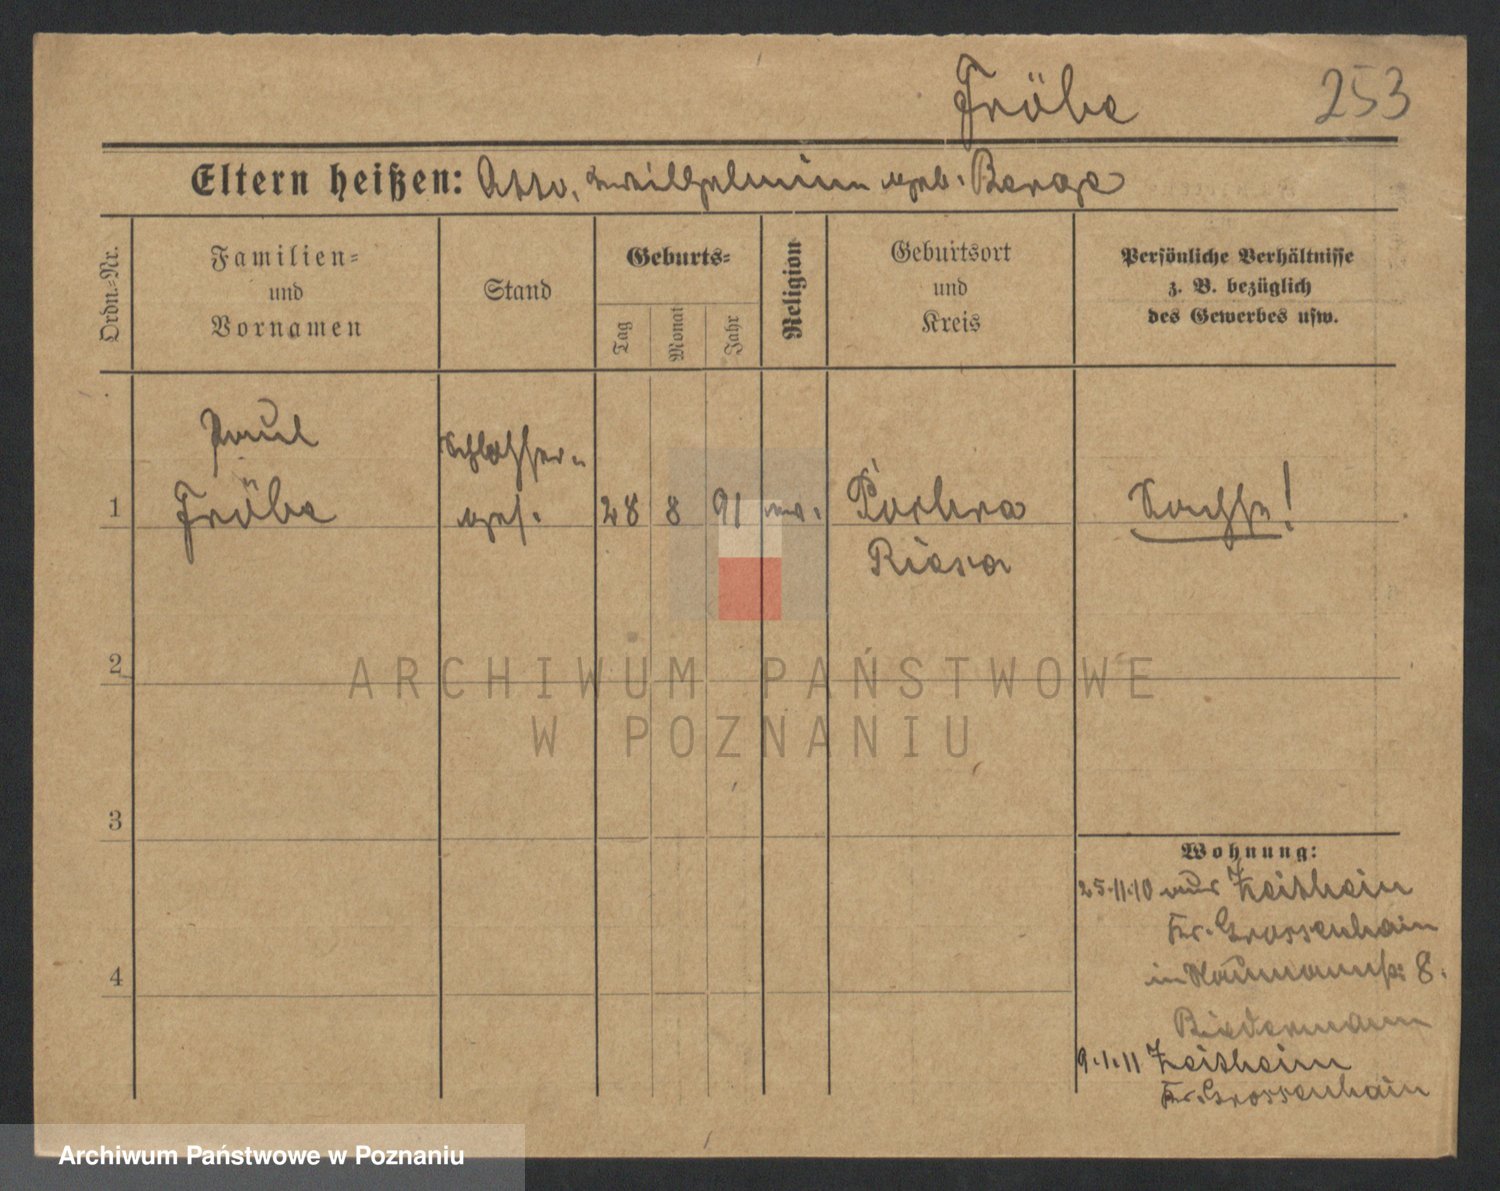 Fröbe
253
Eltern heißen: Otto, Wilhelmine geb. Berge
Ordn.=Nr.
Familien=
und
Vornamen
Stand
Geburts=
Tag
Monat
Jahr
Religion
Geburtsort
und
Kreis
Persönliche Verhältnisse
z. B. bezüglich
des Gewerbes usw.
Paul
Schlosser=
1
Fröbe
ges.
28
8
91
ev.
Sachse!
Riesa
2
ARCHIWUM PAŃSTWOWE
W POZNANIU
3
Wohnung:
25.11.10 aus Zeithain
Kr. Grossenhain
in Naumannstr 8.
Biedermann
4
9.1.11 Zeithain
Kr. Grossenhain
Archiwum Państwowe w Poznaniu